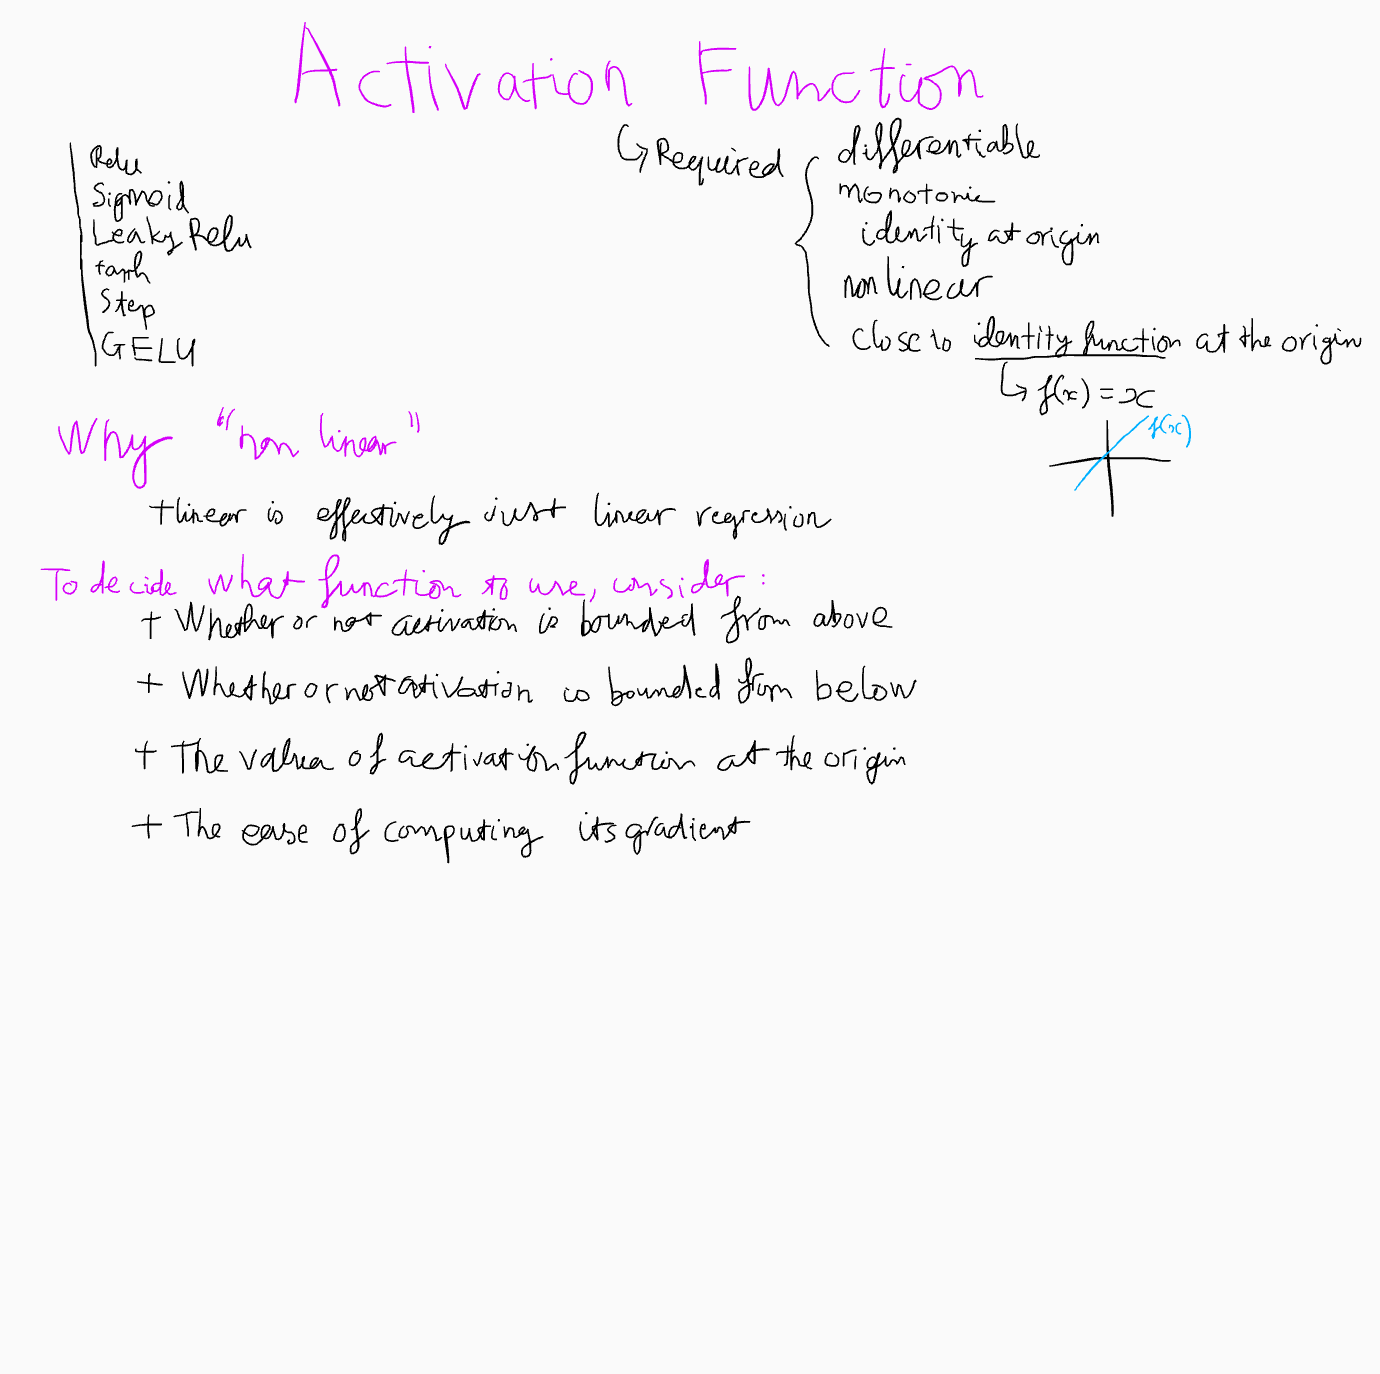 Activation Function
Relu
Sigmoid
Leaky Relu
tanh
Step
GELU
↳ Required
differentiable
monotonic
identity at origin
non linear
close to identity function at the origin
↳ f(x) = x
f(x)
Why "non linear"
+ linear is effectively just linear regression
To decide what function to use, consider:
+ Whether or not activation is bounded from above
+ Whether or not ativation is bounded from below
+ The value of activation function at the origin
+ The ease of computing its gradient